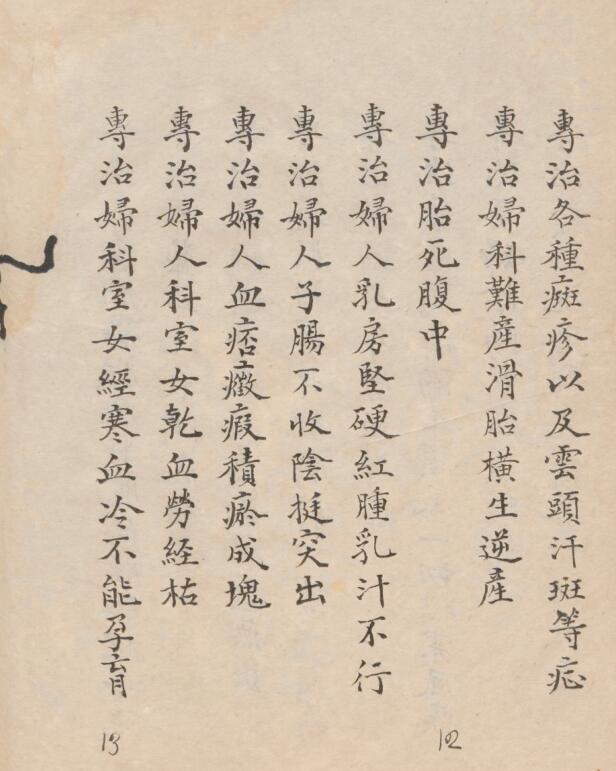 專治各種癍疹以及雲頭汗斑等症
專治婦科難產滑胎橫生逆產
專治胎死腹中
專治婦人乳房堅硬紅腫乳汁不行
專治婦人子腸不收陰挺突出
專治婦人血痞癥瘕積瘀成塊
專治婦人科室女乾血勞經枯
專治婦科室女經寒血冷不能孕育
12
13